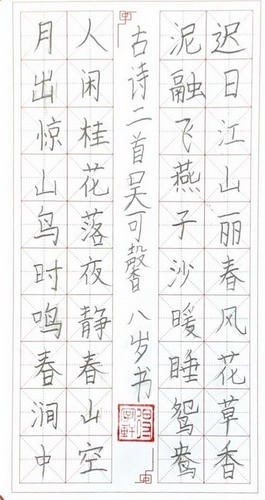 迟日江山丽春风花草香
泥融飞燕子沙暖睡鸳鸯
古诗二首吴可馨 八岁书
人闲桂花落夜静春山空
月出惊山鸟时鸣春涧中